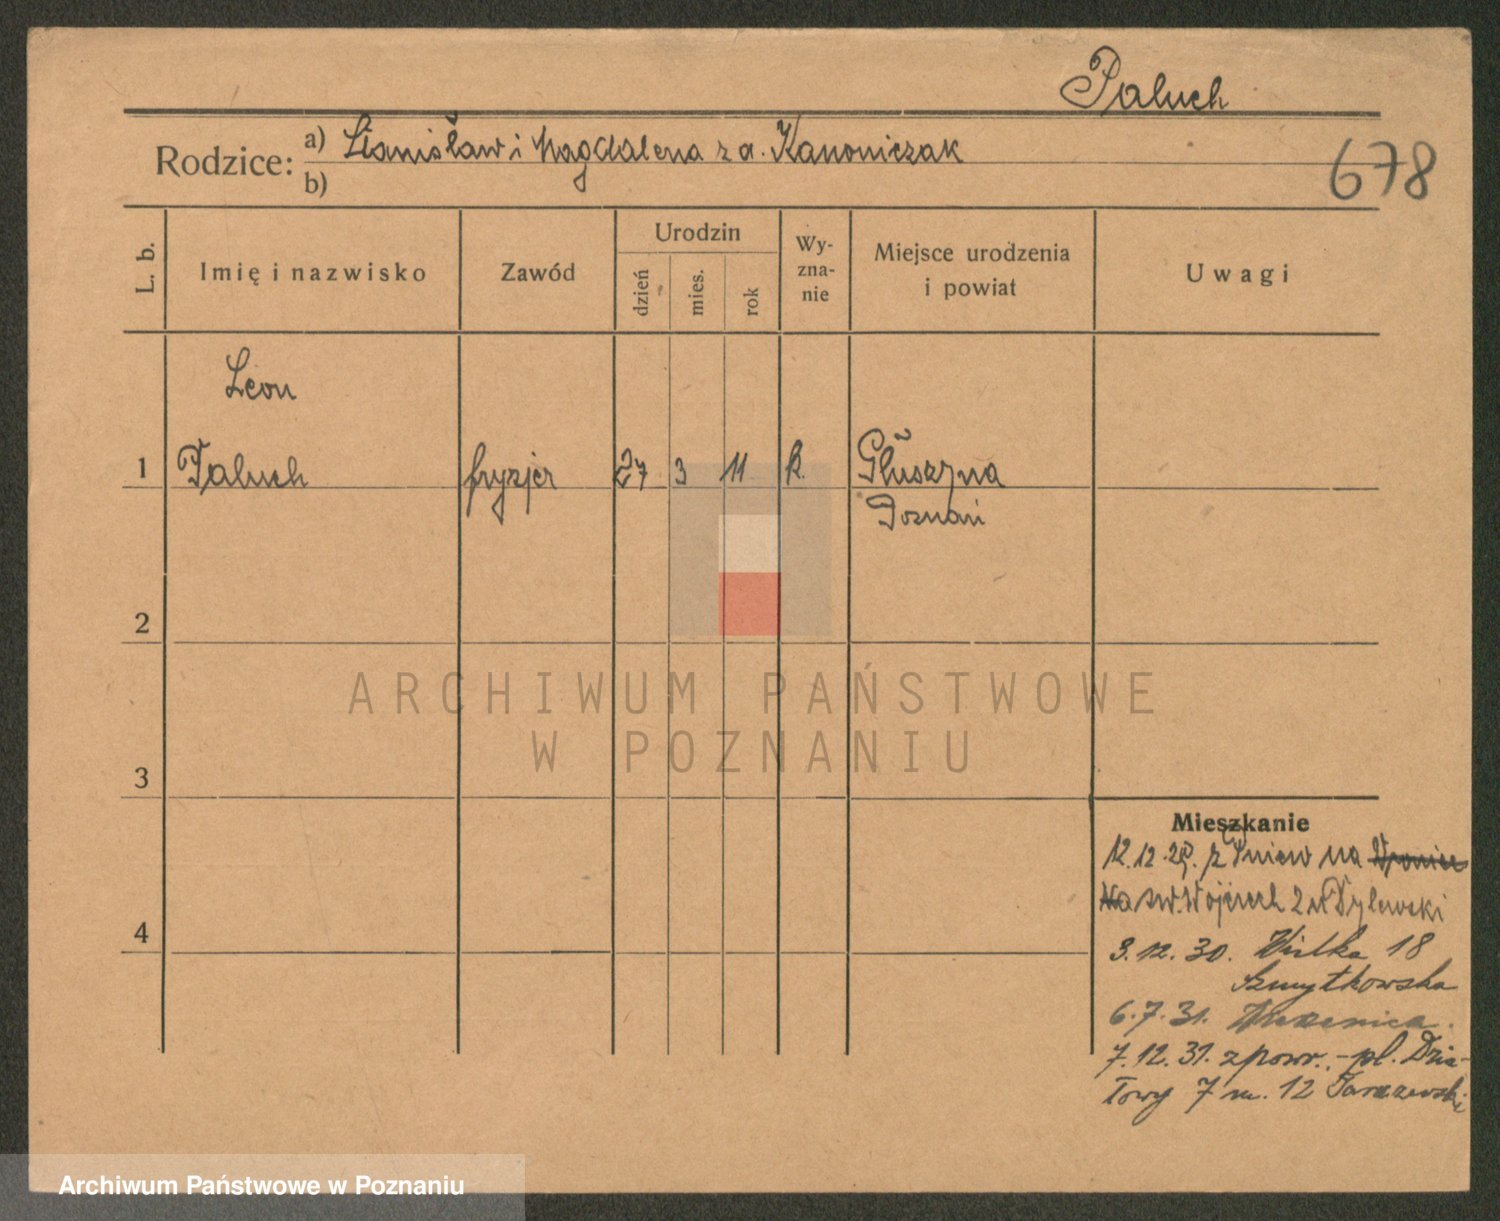 Paluch
Rodzice: a) Stanisław i Magdalena z d. Kanoniczak
b)
678
L. b.
Imię i nazwisko
Zawód
Urodzin
dzień
mies.
rok
Wy-
zna-
nie
Miejsce urodzenia
i powiat
Uwagi
Leon
1 Paluch fryzjer 27 3 11 k. Głuszyna
Poznań
2
3
4
Mieszkanie
12.12. z Pniew na
Na św. Wojciech 2
3.12.30. Wielka 18
Szmytkowska
6.7.31.
7.12.31. z powr. - pl. Dzia-
łowy 7 m. 12
ARCHIWUM PAŃSTWOWE
W POZNANIU
Archiwum Państwowe w Poznaniu